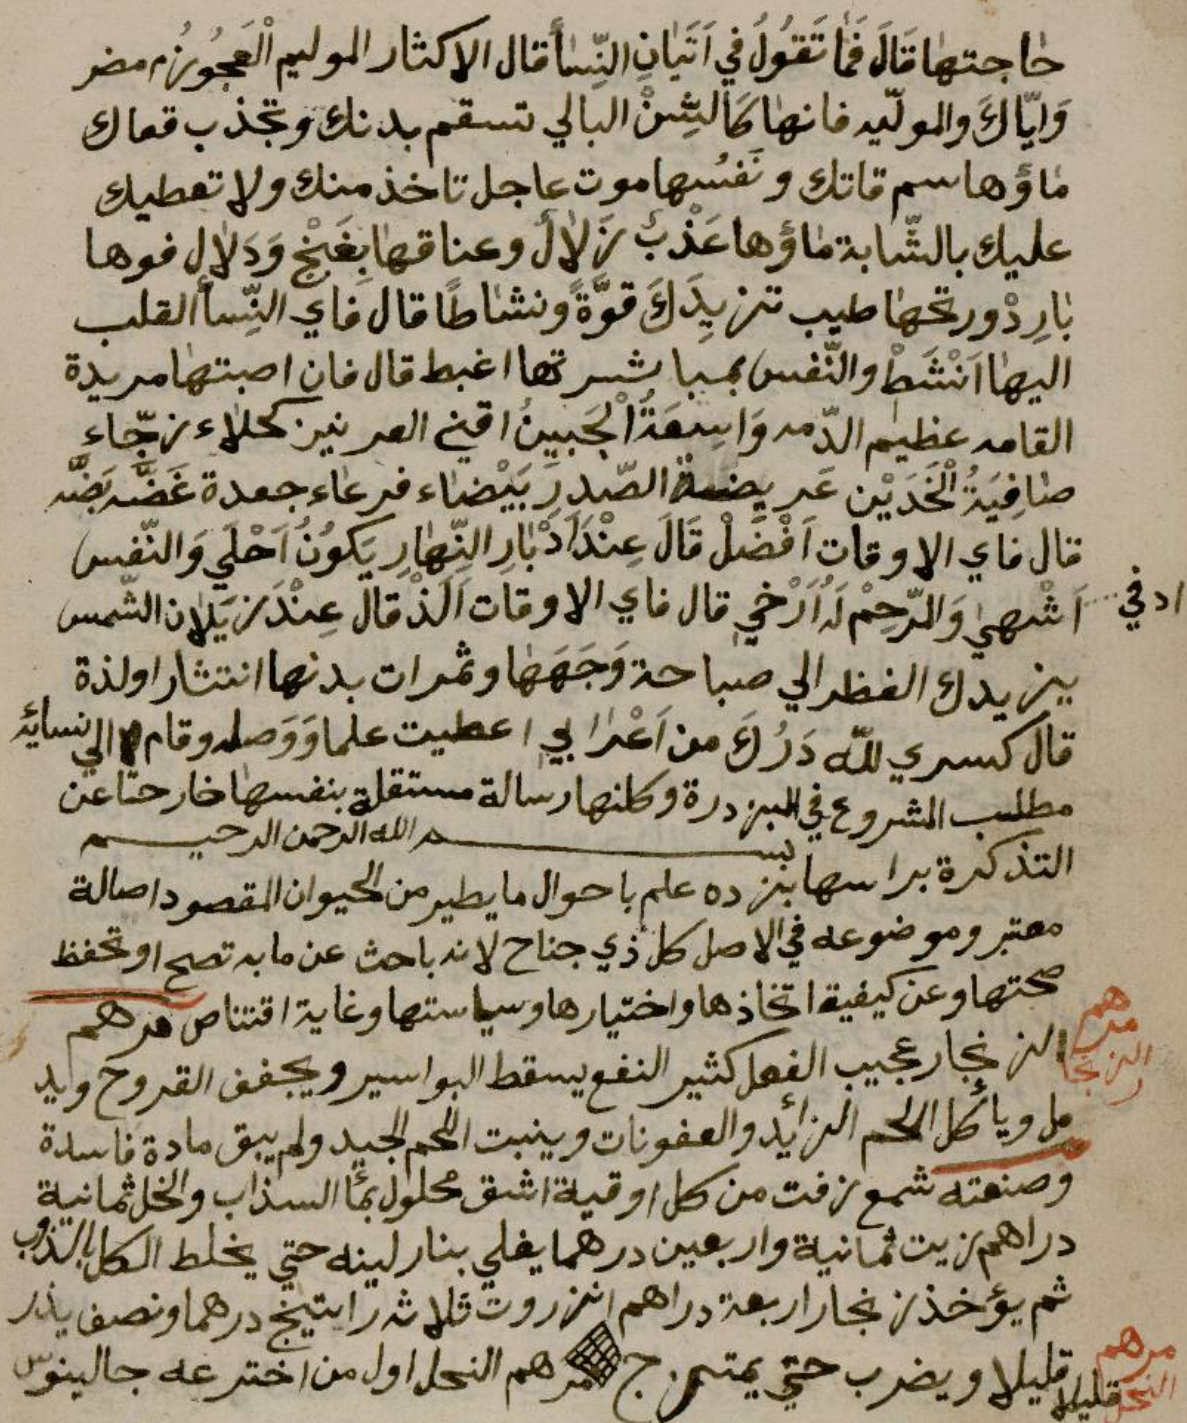 حاجتها قَالَ فَمَا تَقُولُ في اَتَيانِ النِّسأ قال الاكثار الموليم الْعَجُوزُ مضر
وَايّاكَ والمولّيه فانها كَالشِنْ البالي تسقم بدنك وتجذب قعاك
ماؤها سم قاتك ونَفسُها موت عاجل تاخذ منك ولا تعطيك
عليك بالشّابة ماؤها عَذْبٌ زَلالٌ وعناقها بِغَنْجٍ وَدَلالٍ فوها
بارِدْ وريحها طيب تزيدَكَ قوَّةً ونشاطًا قال فاي النِّسأ القلب
اليها اَنْشَطْ والنّفس بمباشرتها اغبط قال فان اصبتها مريدة
القامه عظيم الدّمه وَاسِعَةُ الْجَبينُ اقني العرنين كحلاء زجّاء
صافِيَةُ الْخَدَيْن عَريضة الصّدرَ بَيْضاء فرعاء جعدة غَضَّه بَضَّه
قال فاي الاوقات اَفْضَلْ قَالَ عِنْدَ اَدْبارِ النّهارِ يَكوُنُ اَحْلَي وَالنّفس
اَشْهي وَالرّحِمْ لَهُ اَرْخي قال فاي الاوقات اَلَذْ قال عِنْدَ زيَلان الشّمس
ادفي
يزيدك الفظر الي صباحة وَجَهَها وثمرات بدنها انتشارا ولذة
قال كسري للّه دَرُكَ من اَعْرابي اعطيت علما وَوَصله وقام الي نسائه
مطلب المشروع في البزدرة وكلنها رسالة مستقلة بنفسها خارحتا عن
التذكرة براسها بسم الله الرحمن الرحيم
بزده علم باحوال ما يطير من الحيوان المقصود اصالة
معتبر وموضوعه في الاصل كل ذي جناح لانه باحث عن ما به تصح او تحفظ
صحتها وعن كيفية اتخاذها واختيارها وسياستها وغاية اقتناص مرهم
مرهم الزنجار
الزنجار عجيب الفعل كثير النفع يسقط البواسير ويجفف القروح ويد
مل وياكل اللحم الزائد والعفونات وينبت اللحم الجيد ولم يبق مادة فاسدة
وصنعته شمع زفت من كل اوقية اشق محلول بمأ السذاب والخل ثمانية
دراهم زيت ثمانية واربعين درهما يغلي بنار لينه حتي يخلط الكل بالذوب
ثم يؤخذ زنجار اربعة دراهم انزروت ثلاثه راتينج درهما ونصف يذر
قليلا ويضرب حتي يمتزج مرهم النحل اول من اخترعه جالينوس
قليلا
مرهم النحل